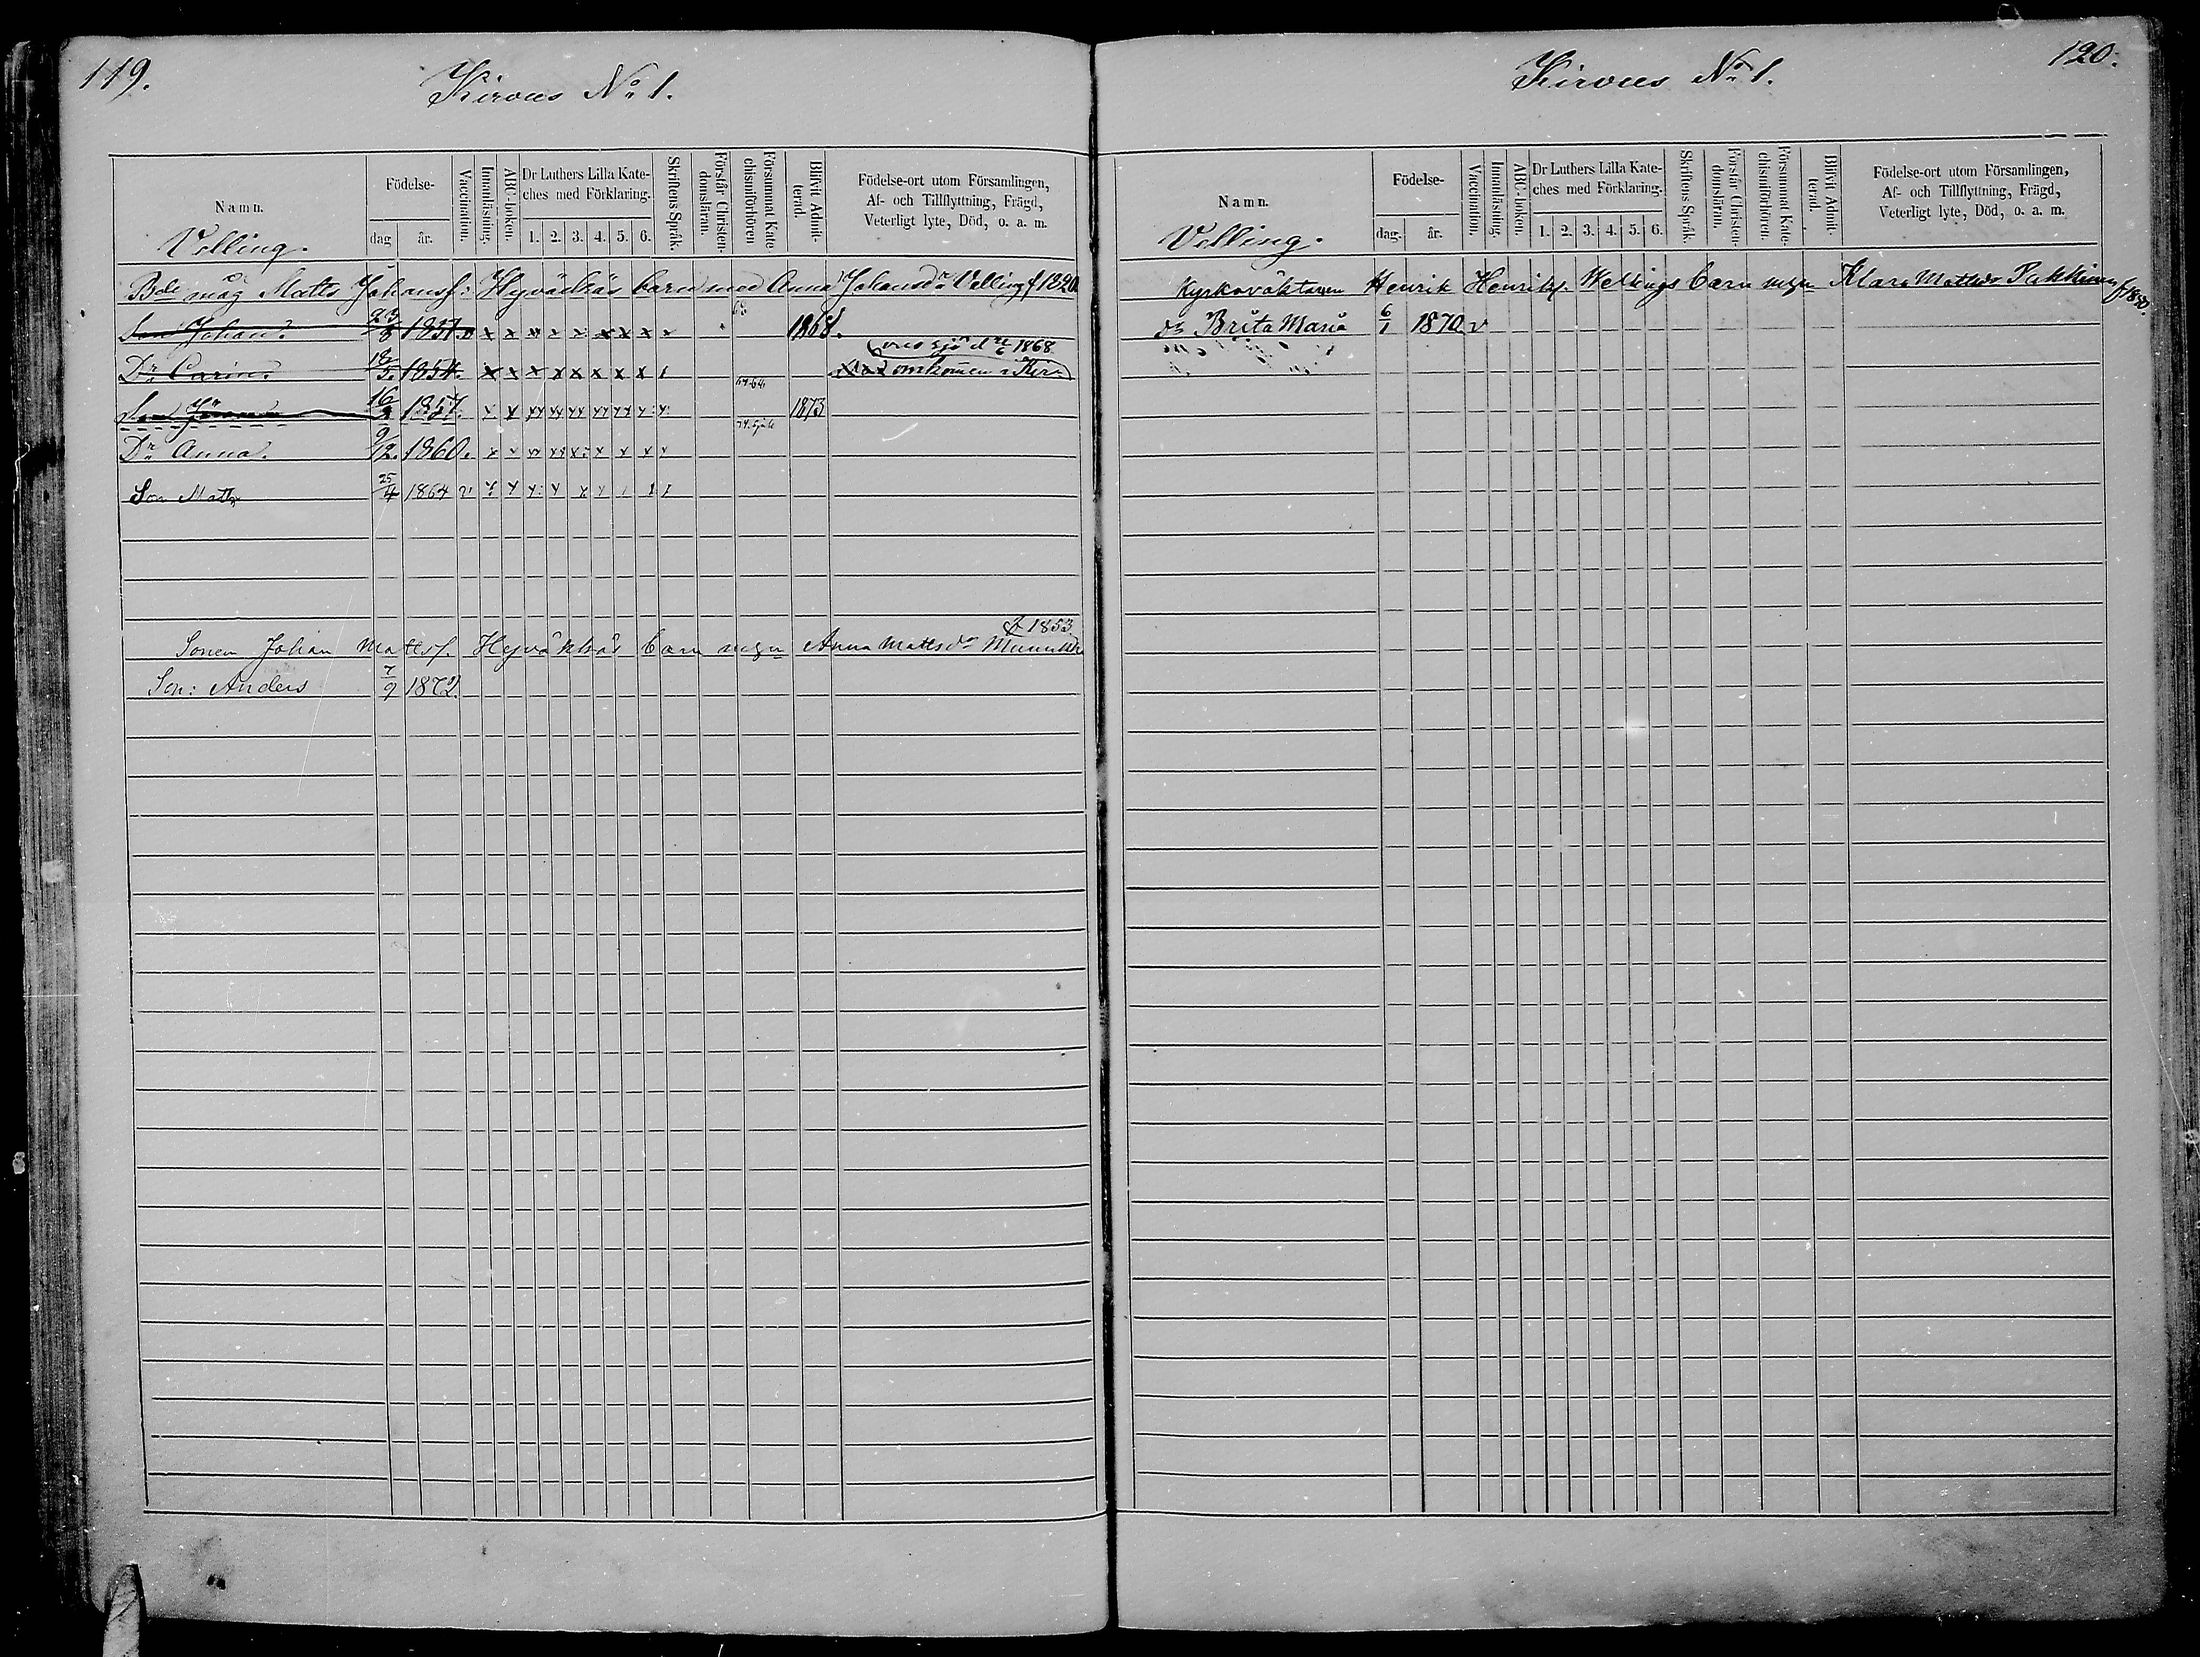 119.
Kirvus No 1.
Namn.
Födelse-
dag
år.
Vaccination.
Innanläsning.
ABC-boken.
Dr Luthers Lilla Kate-
ches med Förklaring.
1. 2. 3. 4. 5. 6.
Skriftens Språk.
Förstår Christen-
domsläran.
Försummat Kate-
chismiförhören
Blifvit Admit-
terad.
Födelse-ort utom Församlingen,
Af- och Tillflyttning, Frägd,
Veterligt lyte, Död, o. a. m.
Velling.
måg Matts Johansf: Hyväkäs barn med Anna Johansdr Velling f 1820
Son Johan. 23/8 1851. v x x x x x x x x x 1868.
Dr Carin. 18/5. 1854. x x x x x x x x omkommen i Kir-
vus sjö d 1868
64.64.
Son Jöran 16/8 1857. 1873
Dr Anna. 9/12. 1860.
Son Matts 25/4 1864 v
f 1853
Sonen Johan Mattsf. Hyväkkäs barn Anna Mattsdr
Son: Anders 7/9 1872
120.
Kirvus No 1.
Namn.
Födelse-
dag.
år.
Vaccination.
Innanläsning.
ABC-boken.
Dr Luthers Lilla Kate-
ches med Förklaring.
1. 2. 3. 4. 5. 6.
Skriftens Språk.
Förstår Christen-
domsläran.
Försummat Kate-
chismiförhören.
Blifvit Admit-
terad.
Födelse-ort utom Församlingen,
Af- och Tillflyttning, Frägd,
Veterligt lyte, Död, o. a. m.
Velling.
Kyrkoväktaren Henrik Henriksf. Wellings barn Klara Mattsdr Pukkinen
dr Brita Maria 6/1 1870 v